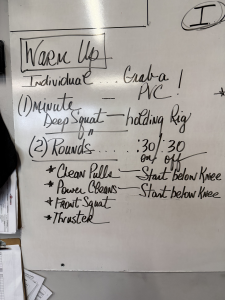 I
Warm Up
Individual.... Grab a PVC!
(1) minute —
Deep Squat — holding Rig
(2) "Rounds..... :30/:30
on/off
* Clean Pulls — Start below Knee
* Power Cleans — Start below Knee
* Front Squat
* Thruster